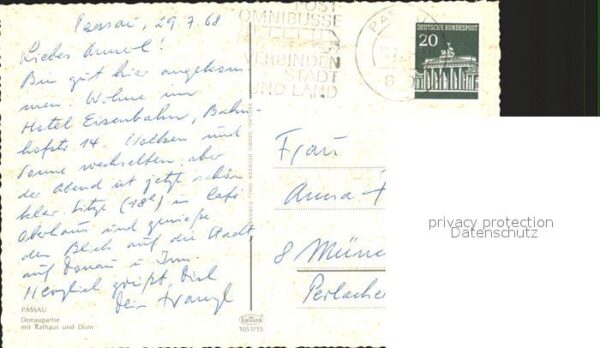 Passau, 29.7.68
Liebes Annerl!
Bin gut hier angekom
men. Wohne im
Hotel Eisenbahn, Bahn-
hofstr. 14. Wolken und
Sonne wechselten, aber
der Abend ist jetzt schön
klar. Sitze (18h) in Café
Oberhaus und genieße
den Blick auf die Stadt
auf Donau u. Inn.
Herzlich grüßt Dich
Dein Franzl
PASSAU
Donaupartie
mit Rathaus und Dom
1051/15
POST
OMNIBUSSE
VERBINDEN
STADT
UND LAND
PASSAU
DEUTSCHE BUNDESPOST
20
Frau
Anna
8 Münc
Perlacher
privacy protection
Datenschutz